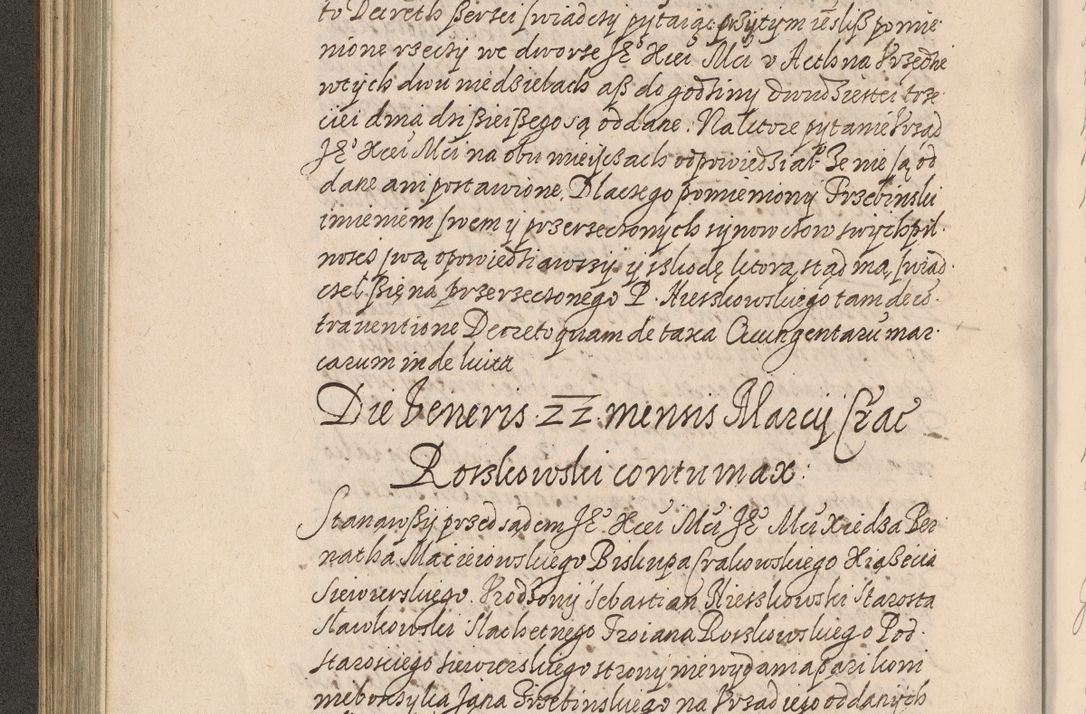 to Decreth ßerzei swiadczy pytaiąc przytym ießliß pomie
nione rzeczy we dworze Jº Xcei Mci v Acth na Przethe
wtych dwu niedzielach aß do godziny dwudziestei trze
ciei dnia dzisieißego są oddane. Na ktore pytanie Vrząd
Jº Xcei Mci na obu mieiscach odpowiedział Że nie są od
dane ani postawione. Dlaczego pomieniony Trzebinski
imieniem swem y przerzeczonych synow swych pil
nosc swą opowiedziawszy y iskodę ktorą stąd ma, swiad
czel ßię na przerzeczonego P. Kieszkowskiego tam de co
trauentione Decreto quam de taxa Quingentaru mar
carum inde luita
Die Veneris 22 mensis Marcij Crac
Rorskowski contumax:
Stanąwßy przed sądem Jº Xcei Mci Jº Mci Xiedza Ber
natha Macieiowskiego Biskupa Crakowskiego Xiąßecia
Siewierskiego. Vrodzony Sebastian Kieszkowski Starosta
Slawkowski Slachetnego Troiana Rorskowskiego Pod
starosciego siewierskiego strony niewydania parikoni
niebosczyka Jana Trzebinskiego na Vrząd iego oddanych